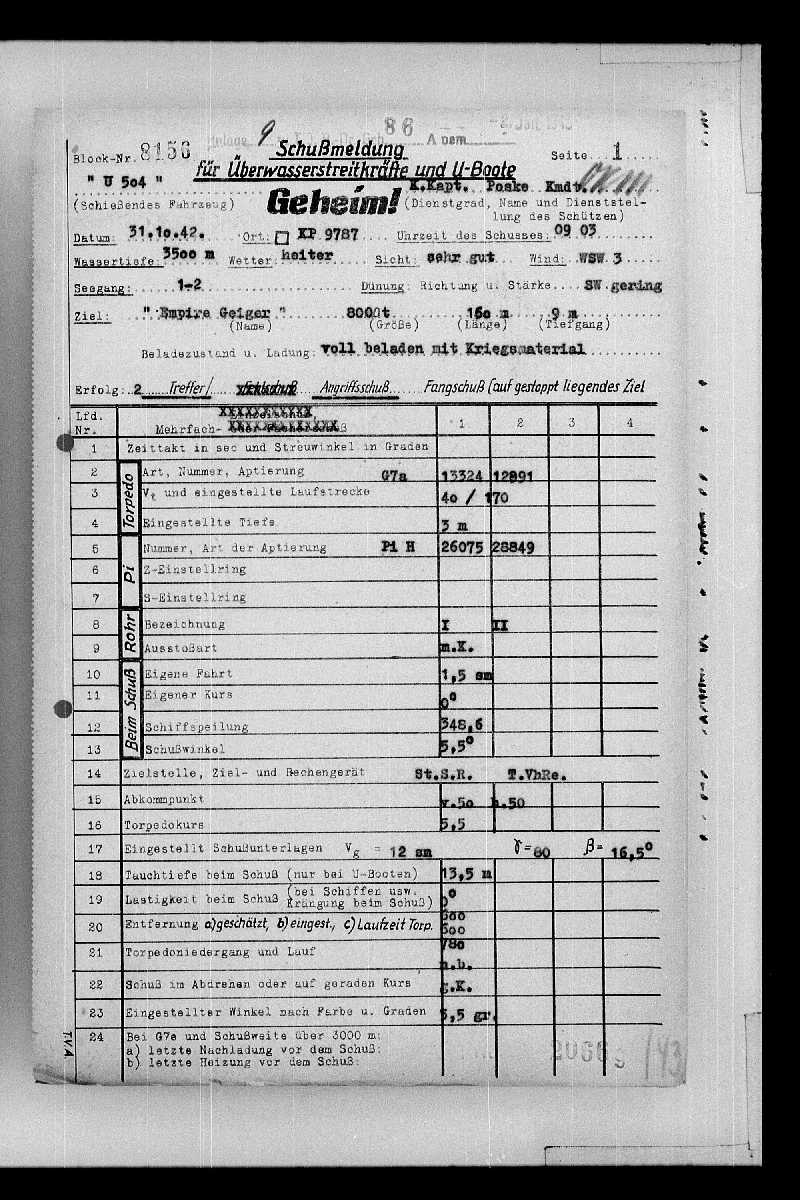 9 86
A dem
Block-Nr. 8156 Schußmeldung Seite 1
für Überwasserstreitkräfte und U-Boote
" U 504 " Geheim! K.Kapt. Poske Kmdt.
(Schießendes Fahrzeug) (Dienstgrad, Name und Dienststel-
lung des Schützen)
Datum: 31.10.42. Ort: □ KP 9787 Uhrzeit des Schusses: 09 03
Wassertiefe: 3500 m Wetter: heiter Sicht: sehr gut Wind: WSW 3
Seegang: 1-2 Dünung: Richtung u. Stärke SW gering
Ziel: " Empire Geiger " 8000t 160 m 9 m
(Name) (Größe) (Länge) (Tiefgang)
Beladezustand u. Ladung: voll beladen mit Kriegsmaterial
Erfolg: 2 Treffer/ Fehlschuß Angriffsschuß Fangschuß (auf gestoppt liegendes Ziel
Lfd. Nr. Einzelschuß,
Mehrfach- oder Fächerschuß 1 2 3 4
1 Zeittakt in sec und Streuwinkel in Graden
Torpedo
2 Art, Nummer, Aptierung G7a 13324 12891
3 Vt und eingestellte Laufstrecke 40 / 170
4 Eingestellte Tiefe 3 m
Pi
5 Nummer, Art der Aptierung Pi H 26075 28849
6 Z-Einstellring
7 S-Einstellring
Rohr
8 Bezeichnung I II
9 Ausstoßart m.K.
Beim Schuß
10 Eigene Fahrt 1,5 sm
11 Eigener Kurs 0°
12 Schiffspeilung 348,6
13 Schußwinkel 5,5°
14 Zielstelle, Ziel- und Rechengerät St.S.R. T.VhRe.
15 Abkommpunkt v.50 h.50
16 Torpedokurs 5,5
17 Eingestellt Schußunterlagen Vg = 12 sm γ= 80 β= 16,5°
18 Tauchtiefe beim Schuß (nur bei U-Booten) 13,5 m
19 Lastigkeit beim Schuß (bei Schiffen usw. Krängung beim Schuß) 0°
20 Entfernung a) geschätzt, b) eingest., c) Laufzeit Torp. 600
21 Torpedoniedergang und Lauf n.b.
22 Schuß im Abdrehen oder auf geraden Kurs g.K.
23 Eingestellter Winkel nach Farbe u. Graden 5,5 gr.
24 Bei G7e und Schußweite über 3000 m:
a) letzte Nachladung vor dem Schuß:
b) letzte Heizung vor dem Schuß:
TVA